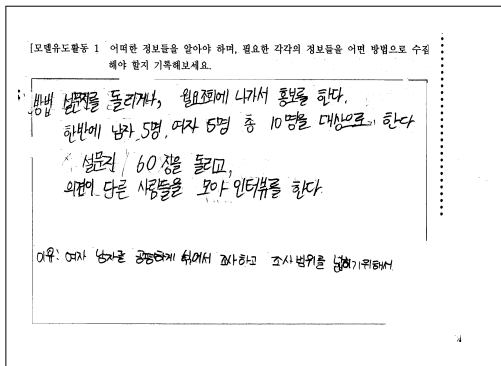 [모델유도활동 1 어떠한 정보들을 알아야 하며, 필요한 각각의 정보들을 어떤 방법으로 수집
해야 할지 기록해보세요.
방법 설문지를 돌리거나, 월요조회에 나가서 홍보를 한다.
한반에 남자 5명, 여자 5명 총 10명을 대상으로 한다
설문지 60장을 돌리고,
의견이 다른 사람들을 모아 인터뷰를 한다
이유: 여자 남자를 공평하게 섞어서 조사하고 조사범위를 넓히기위해서